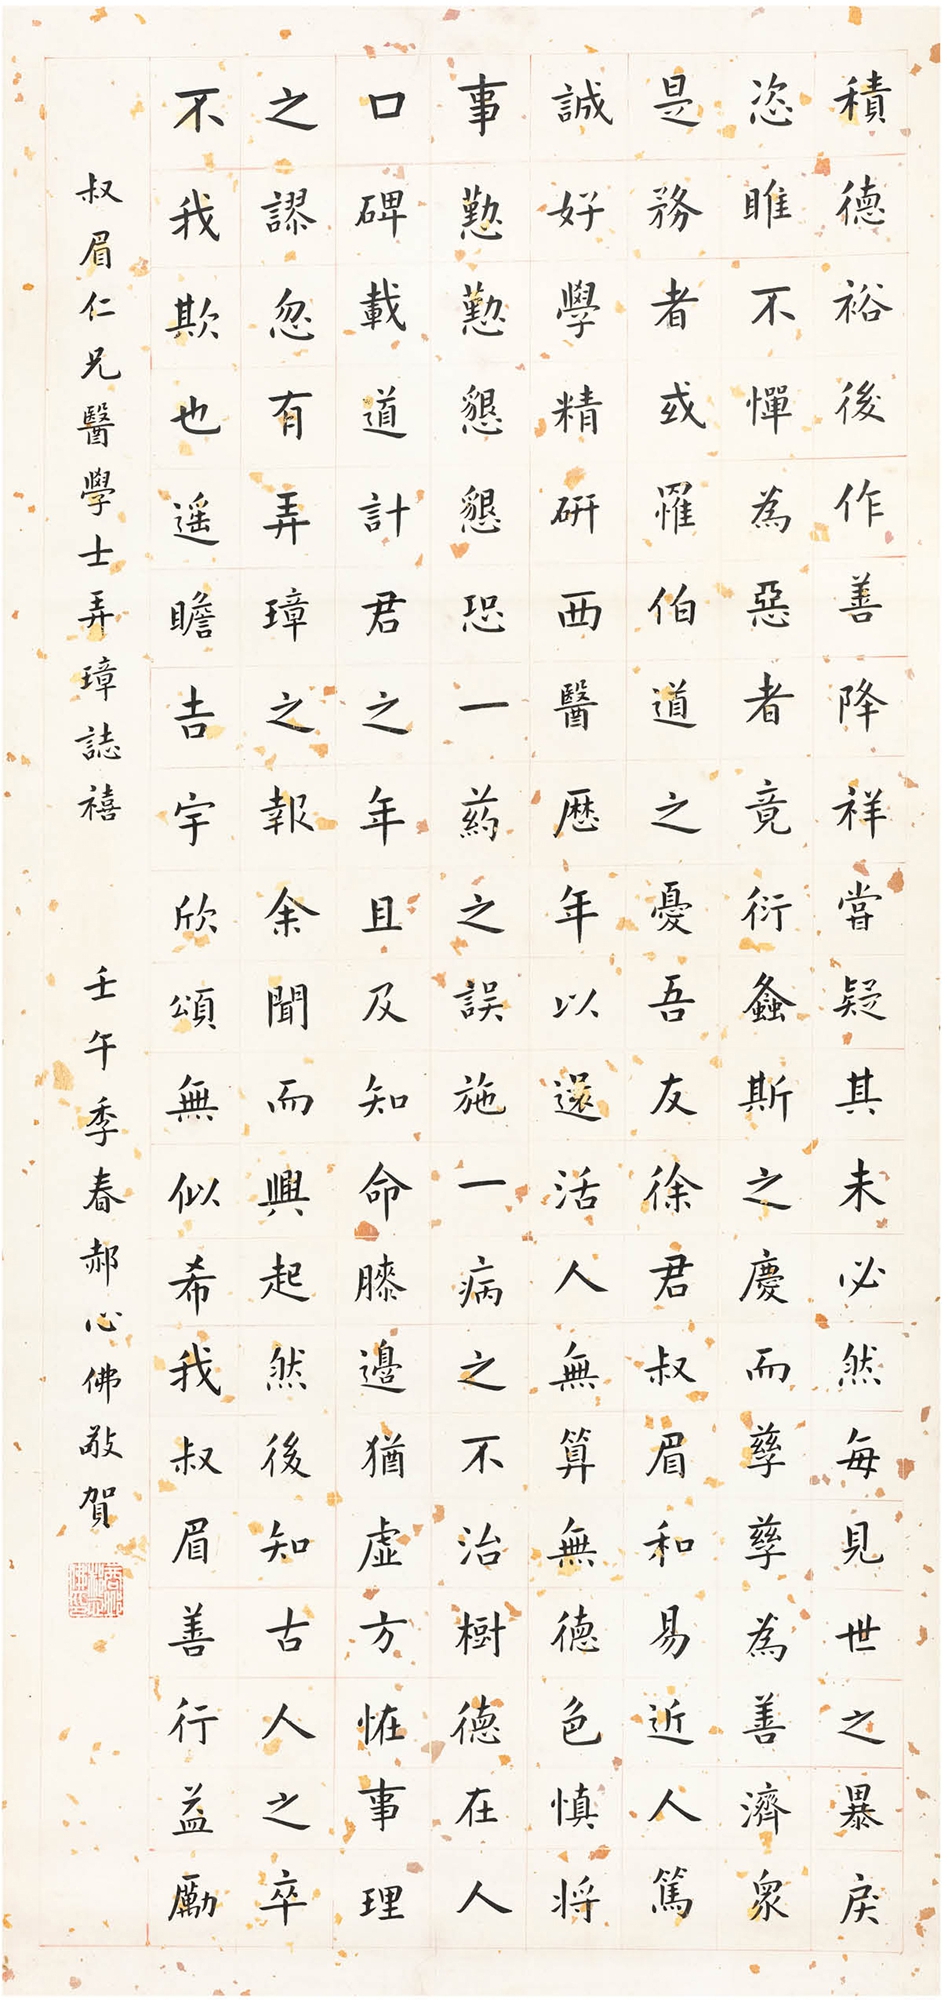 積德裕後作善降祥嘗疑其未必然每見世之暴戾
恣睢不憚為惡者竟衍螽斯之慶而孳孳為善濟眾
是務者或罹伯道之憂吾友徐君叔眉和易近人篤
誠好學精研西醫歷年以還活人無算無德色慎將
事懃懃懇懇恐一药之誤施一病之不治樹德在人
口碑載道計君之年且及知命膝邊猶虛方恠事理
之謬忽有弄璋之報余聞而興起然後知古人之卒
不我欺也遥瞻吉宇欣頌無似希我叔眉善行益勵
叔眉仁兄醫學士弄璋誌禧 壬午季春郝心佛敬賀